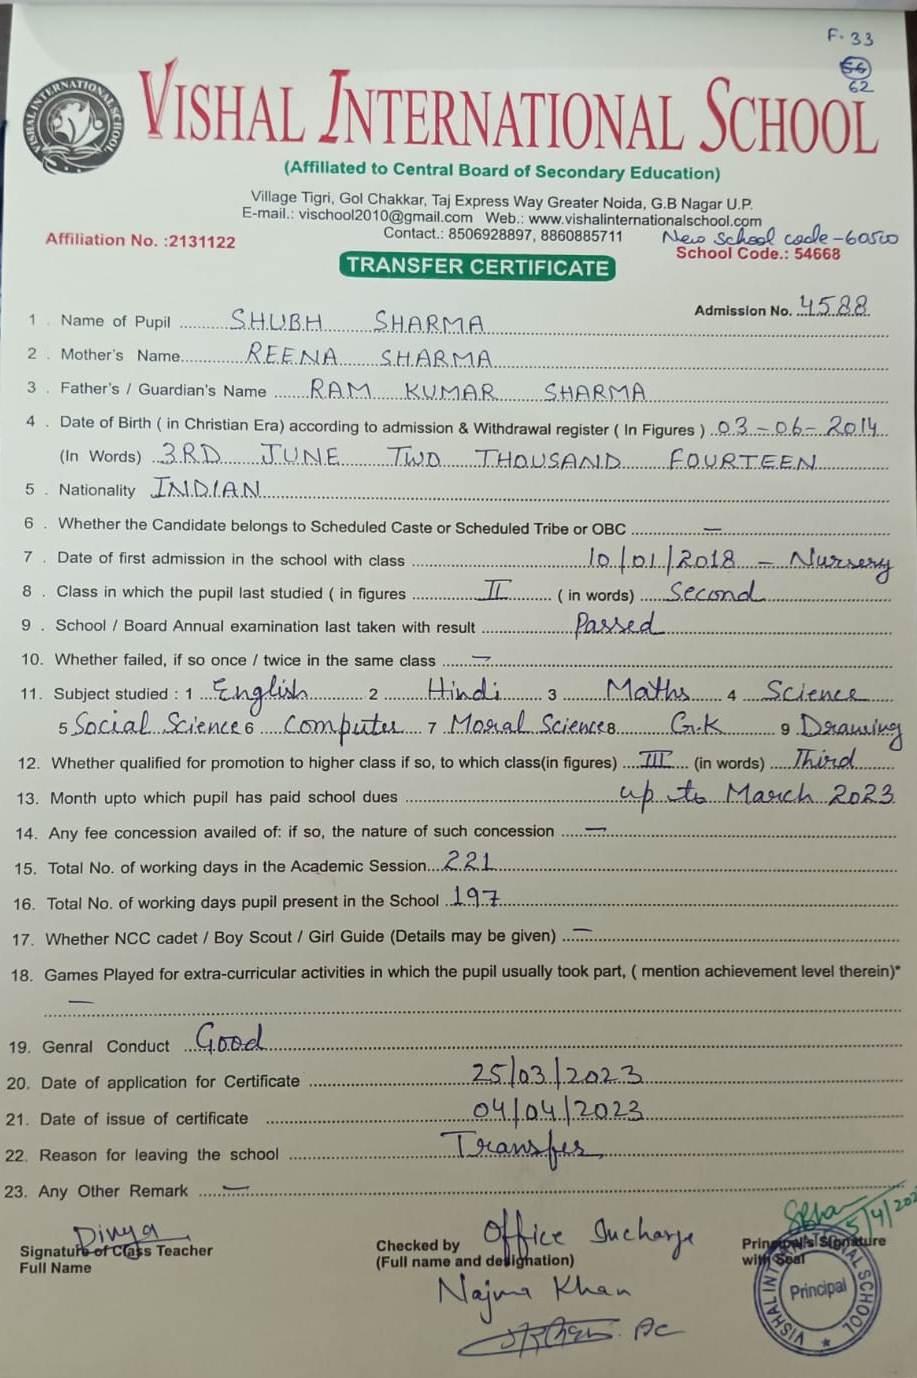 F. 33
62
VISHAL INTERNATIONAL SCHOOL
VISHAL INTERNATIONAL SCHOOL
(Affiliated to Central Board of Secondary Education)
Village Tigri, Gol Chakkar, Taj Express Way Greater Noida, G.B Nagar U.P.
E-mail.: vischool2010@gmail.com Web.: www.vishalinternationalschool.com
Contact.: 8506928897, 8860885711
New School code - 60500
Affiliation No. :2131122
School Code.: 54668
TRANSFER CERTIFICATE
Admission No. 4588
1 . Name of Pupil SHUBH SHARMA
2 . Mother's Name REENA SHARMA
3 . Father's / Guardian's Name RAM KUMAR SHARMA
4 . Date of Birth ( in Christian Era) according to admission & Withdrawal register ( In Figures ) 03-06-2014
(In Words) 3RD JUNE TWO THOUSAND FOURTEEN
5 . Nationality INDIAN
6 . Whether the Candidate belongs to Scheduled Caste or Scheduled Tribe or OBC —
7 . Date of first admission in the school with class 10/01/2018 - Nursery
8 . Class in which the pupil last studied ( in figures II ( in words) Second
9 . School / Board Annual examination last taken with result Passed
10. Whether failed, if so once / twice in the same class —
11. Subject studied : 1 English 2 Hindi 3 Maths 4 Science
5 Social Science 6 Computer 7 Moral Science 8 G.K 9 Drawing
12. Whether qualified for promotion to higher class if so, to which class(in figures) III (in words) Third
13. Month upto which pupil has paid school dues up to March 2023
14. Any fee concession availed of: if so, the nature of such concession —
15. Total No. of working days in the Academic Session 221
16. Total No. of working days pupil present in the School 197
17. Whether NCC cadet / Boy Scout / Girl Guide (Details may be given) —
18. Games Played for extra-curricular activities in which the pupil usually took part, ( mention achievement level therein)*
—
19. Genral Conduct Good
20. Date of application for Certificate 25/03/2023
21. Date of issue of certificate 04/04/2023
22. Reason for leaving the school Transfer
23. Any Other Remark —
Divya
Signature of Class Teacher
Full Name
Checked by Office Incharge
(Full name and designation)
Najma Khan
5/4/202
Principal's Signature
with Seal
VISHAL INTERNATIONAL SCHOOL
Principal